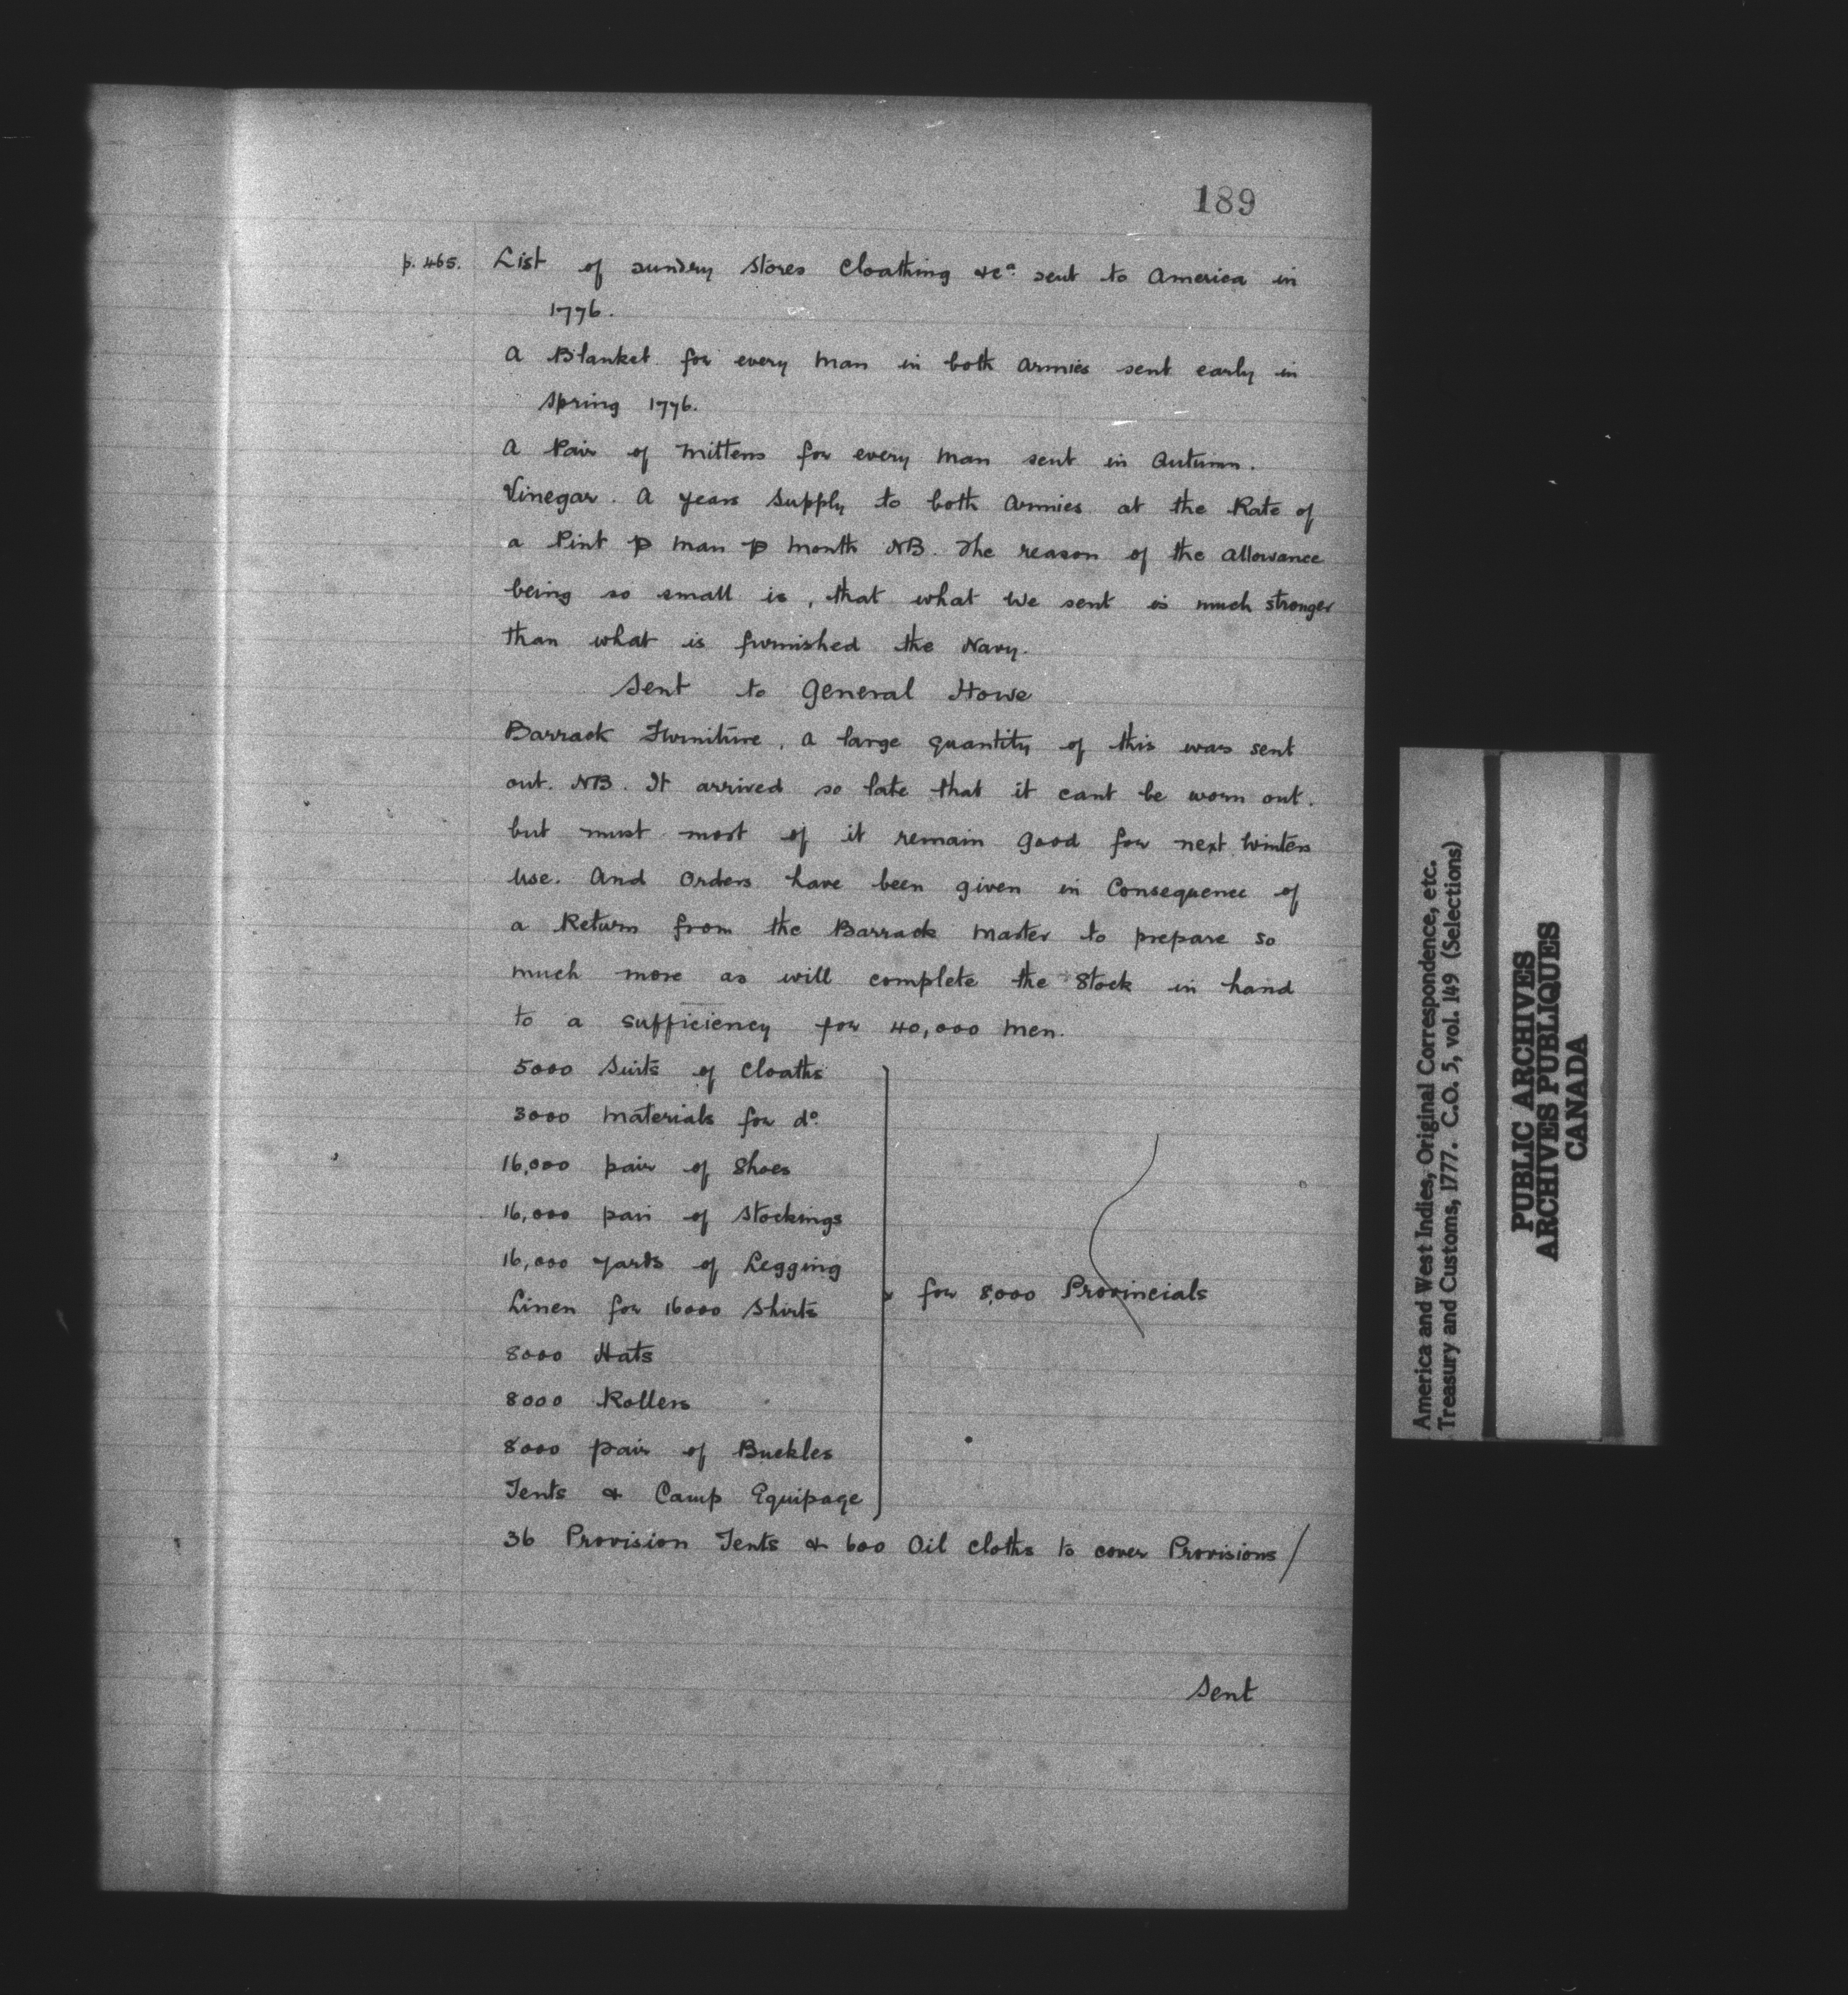 189
p. 465. List of sundry Stores Cloathing &cª sent to America in
1776.
A Blanket for every Man in both Armies sent early in
Spring 1776.
A Pair of Mittens for every Man sent in Autumn.
Vinegar. A years Supply to both Armies at the Rate of
a Pint ⅌ Man ⅌ Month NB. The reason of the allowance
being so small is, that what We sent is much stronger
than what is furnished the Navy.
Sent to General Howe
Barrack Furniture, a large quantity of this was sent
out. NB. It arrived so late that it cant be worn out.
but must most of it remain good for next Winters
Use. And Orders have been given in Consequence of
a Return from the Barrack Master to prepare so
much more as will complete the Stock in hand
to a sufficiency for 40,000 Men.
5000 Suits of Cloaths
3000 Materials for dº
16,000 pair of Shoes
16,000 pair of Stockings
16,000 yards of Legging
for 8,000 Provincials
Linen for 16000 Shirts
8000 Hats
8000 Rollers
8000 pair of Buckles
Tents & Camp Equipage
36 Provision Tents & 600 Oil Cloths to cover Provisions/
Sent
America and West Indies, Original Correspondence, etc.
Treasury and Customs, 1777. C.O. 5, vol. 149 (Selections)
PUBLIC ARCHIVES
ARCHIVES PUBLIQUES
CANADA